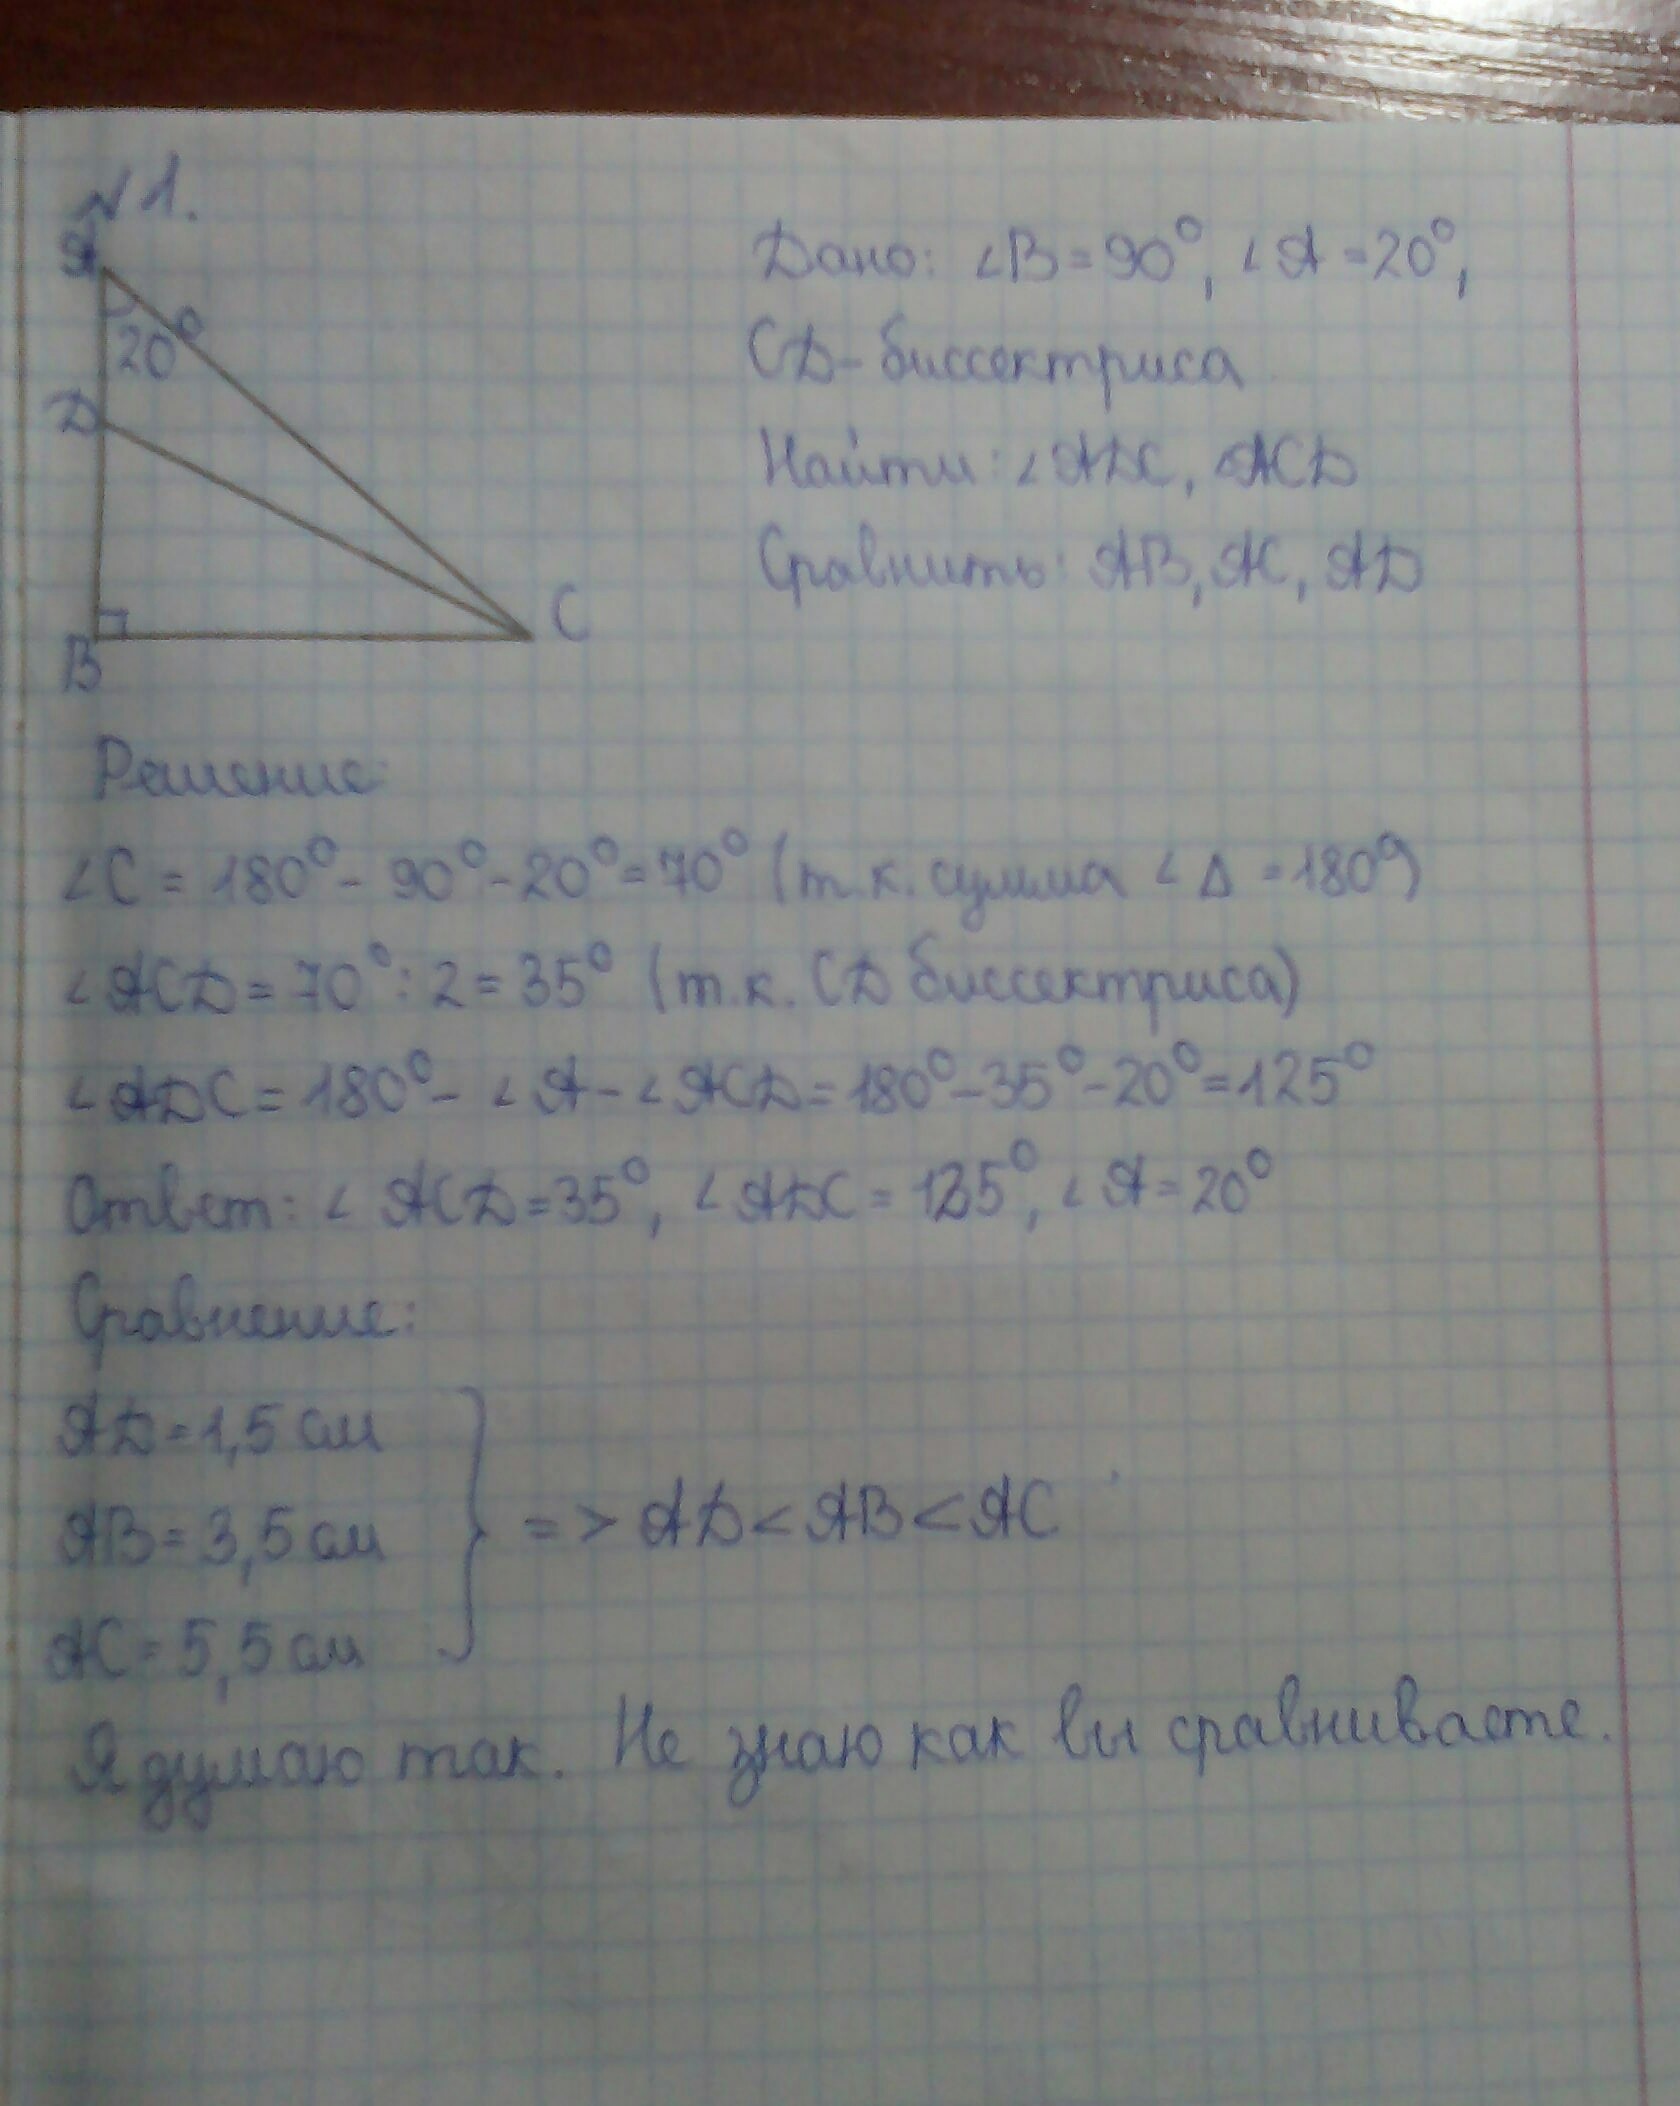 №1.
A
20°
D
B
C
Дано: ∠B = 90°, ∠A = 20°,
CD - биссектриса
Найти: ∠ADC, ∠ACD
Сравнить: AB, AC, AD
Решение:
∠C = 180° - 90° - 20° = 70° (т.к. сумма ∠ Δ = 180°)
∠ACD = 70° : 2 = 35° (т.к. CD биссектриса)
∠ADC = 180° - ∠A - ∠ACD = 180° - 35° - 20° = 125°
Ответ: ∠ACD = 35°, ∠ADC = 125°, ∠A = 20°
Сравнение:
AD = 1,5 см
AB = 3,5 см
AC = 5,5 см
=> AD < AB < AC
Я думаю так. Не знаю как вы сравниваете.